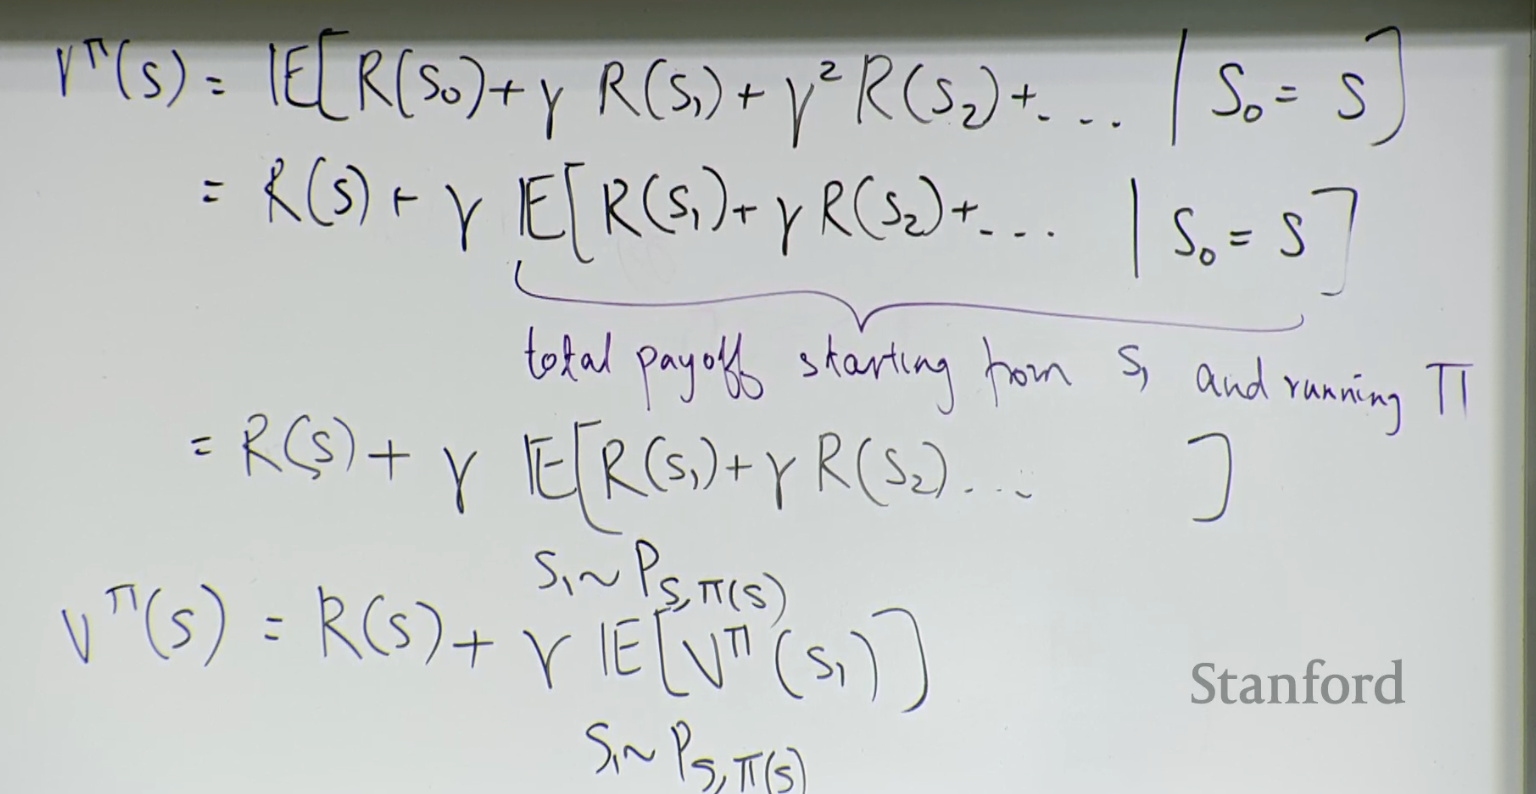 V^π(s) = E[R(s₀) + γ R(s₁) + γ² R(s₂) + ... | s₀ = s]
= R(s) + γ E[R(s₁) + γ R(s₂) + ... | s₀ = s]
total payoff starting from s₁ and running π
= R(s) + γ E[R(s₁) + γ R(s₂) ... ]
s₁ ~ P_{s,π(s)}
V^π(s) = R(s) + γ E[V^π(s₁)]
Stanford
s₁ ~ P_{s,π(s)}